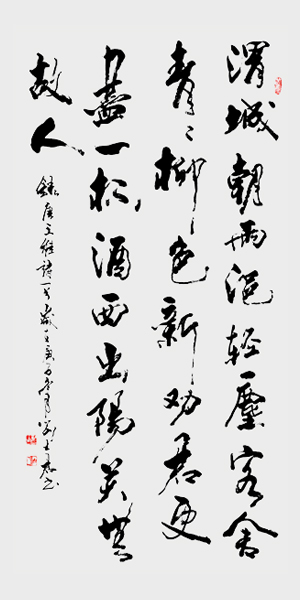 渭城朝雨浥輕塵客舍
青々柳色新劝君更
盡一杯酒西出陽关無
故人
録唐王維詩一首歲